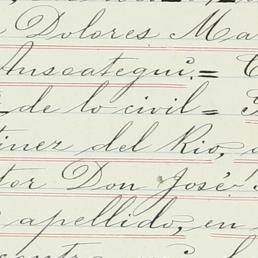 Dolores Ma
Anscategui.=
de lo civil=
inez del Rio,
tor Don José
apellido, en